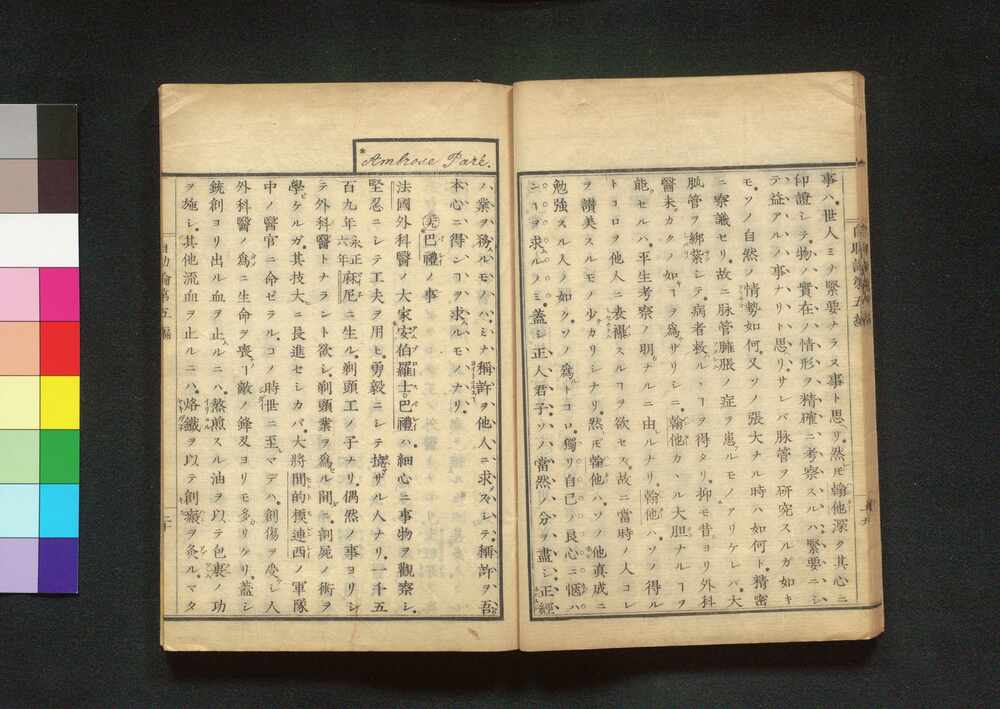 事ハ世人ミナ緊要ナラヌ事ト思ヘリ然𪜈翰他深ク其心ニ
印證シテ物ノ實在ノ情形ヲ精確ニ考察スルハ緊要ニシ
テ益アルノ事ナリト思ヘリサレバ脉管ヲ研究スルガ如キ
モソノ自然ノ情勢如何又ソノ張大ナル時ハ如何ト精密
ニ察識セリ故ニ脉管膨脹ノ症ヲ患ルモノアリケレバ大
脉管ヲ綁紮シテ病者救ハルヽヿヲ得タリ抑モ昔ヨリ外科
醫未カクノ如キヿヲ爲サヾリシニ翰他カヽル大胆ナルヿヲ
能セルハ平生考察ノ明ナルニ由ルナリ翰他ハソノ得ル
トコロヲ他人ニ表襮スルヿヲ欲セズ故ニ當時ノ人コレ
ヲ讃美スルモノ少カリシナリ然𪜈翰他ハソノ他眞成ニ
勉強スル人ノ如クソノ爲トコロ獨リ自己ノ良心ニ愜ハ
ンヿヲ求ルノミ蓋シ正人君子ソノ當然ノ分ヲ盡シ正經
ハ業ヲ務ルモノハミナ稱許ヲ他人ニ求ズシテ稱許ヲ吾
本心ニ得ンヿヲ求ルモノナリ
巴禮ノ事
*Ambrose Paré.
法國外科醫ノ大家安伯羅士巴禮ハ細心ニ事物ヲ觀察シ
堅忍ニシテ工夫ヲ用ヒ勇毅ニシテ撓ザル人ナリ一千五
百九年永正六年麻尼ニ生ル剃頭工ノ子ナリ偶然ノ事ヨリシ
テ外科醫トナラント欲シ剃頭業ヲ爲ル間剖屍ノ術ヲ
學ケルガ其技大ニ長進セシカバ大將間的模連西ノ軍隊
中ノ醫官ニ命ゼラルコノ時世ニ至マデハ創傷ヲ受シ人
外科醫ノ爲ニ生命ヲ喪フヿ敵ノ鋒刃ヨリモ多リケリ蓋シ
銃創ヨリ出ル血ヲ止ルニハ熬煎スル油ヲ以テ包裹ノ功
ヲ施シ其他流血ヲ止ルニハ烙鐵ヲ以テ創瘢ヲ灸ルマタ